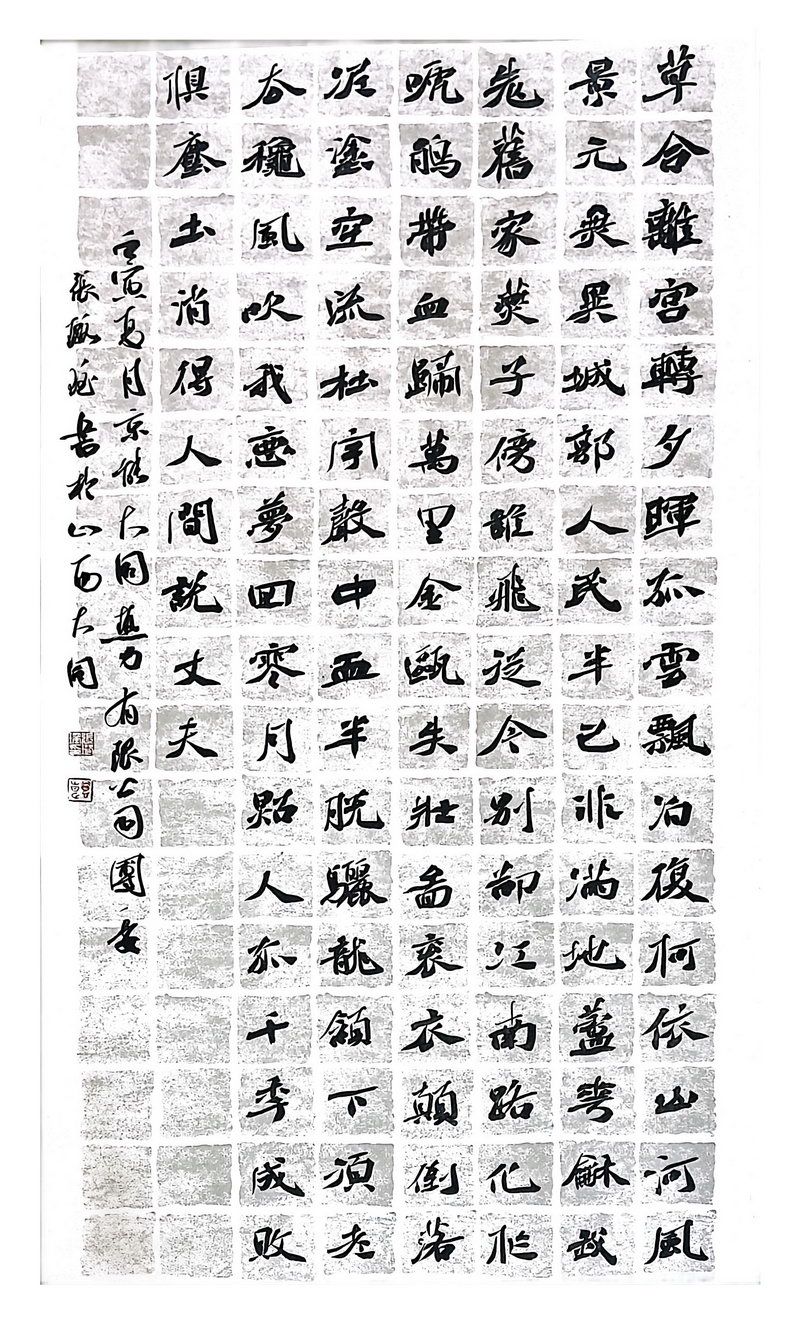 草合離宮轉夕暉孤雲飄泊復柯依山河風
景元無異城郭人民半已非滿地蘆花龢我
老舊家燕子傍誰飛從今別卻江南路化作
嗁鵑帶血歸萬里金甌失壯圖袞衣顛倒落
泥塗空流杜宇聲中血半脫驪龍領下須老
去龝風吹我惡夢回寒月照人孤千季成敗
俱塵土消得人間說丈夫
壬寅夏月京能大同熱力有限公司團委
張書於山西大同